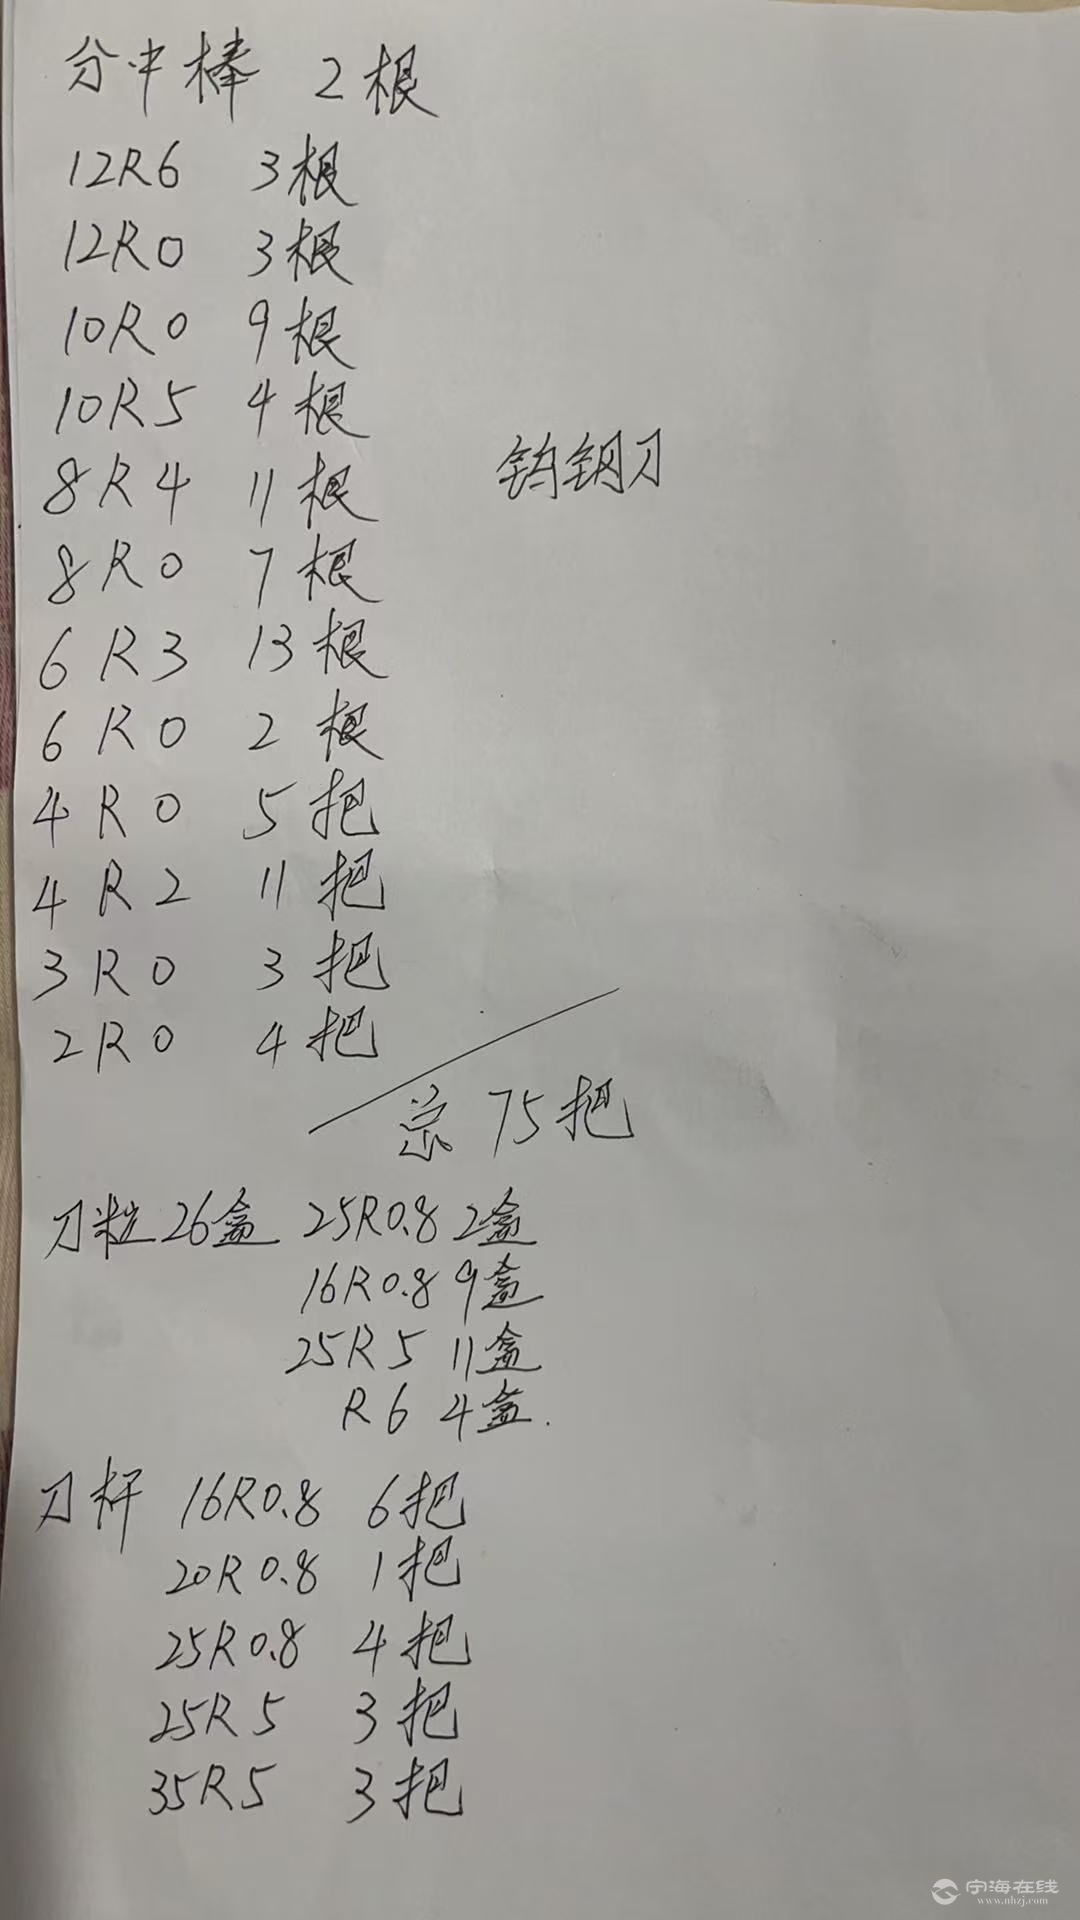 分中棒 2根
12R6 3根
12R0 3根
10R0 9根
10R5 4根
8R4 11根
钨钢刀
8R0 7根
6R3 13根
6R0 2根
4R0 5把
4R2 11把
3R0 3把
2R0 4把
总 75把
刀粒 26盒 25R0.8 2盒
16R0.8 9盒
25R5 11盒
R6 4盒.
刀杆 16R0.8 6把
20R0.8 1把
25R0.8 4把
25R5 3把
35R5 3把
宁海在线
www.nhzj.com